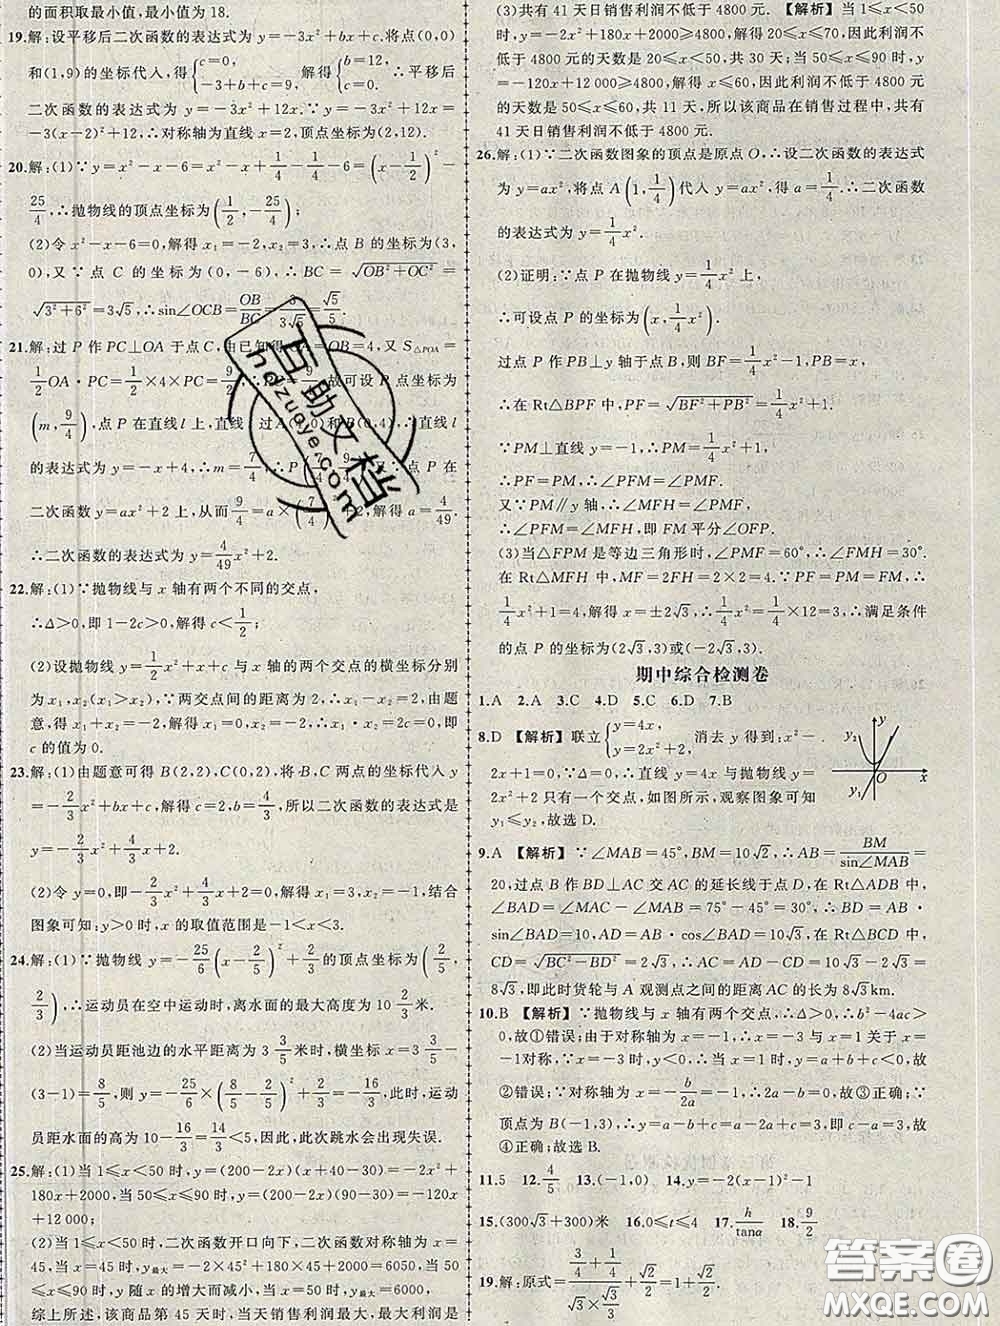 的面积取最小值,最小值为18.
19.解:设平移后二次函数的表达式为y=-3x²+bx+c.将点(0,0)
和(1,9)的坐标代入,得{c=0, -3+b+c=9, 解得{b=12, c=0. ∴平移后
二次函数的表达式为y=-3x²+12x.∵y=-3x²+12x=
-3(x-2)²+12,∴对称轴为直线x=2,顶点坐标为(2,12).
20.解:(1)∵y=x²-x-6=x²-x+1/4-1/4-6=(x-1/2)²-
25/4,∴抛物线的顶点坐标为(1/2,-25/4);
(2)令x²-x-6=0,解得x₁=-2,x₂=3;∴点B的坐标为(3,
0),又∵点C的坐标为(0,-6),∴BC=√(OB²+OC²)=
√(3²+6²)=3√5,∴sin∠OCB=OB/BC=3/(3√5)=√5/5.
21.解:过P作PC⊥OA于点C,由已知得OA=OB=4,又S△POA=
1/2OA·PC=1/2×4×PC=9/2, 故可设P点坐标为
(m,9/4),点P在直线l上,直线 过A(4,0)和B(0,4),∴直线l
的表达式为y=-x+4,∴m=7/4,∴P(7/4,9/4).∵点P在
二次函数y=ax²+2上,从而9/4=a×(7/4)²+2,∴a=4/49.
∴二次函数的表达式为y=4/49x²+2.
22.解:(1)∵抛物线与x轴有两个不同的交点,
∴Δ>0,即1-2c>0,解得c<1/2;
(2)设抛物线y=1/2x²+x+c与x轴的两个交点的横坐标分别
为x₁,x₂(x₁>x₂),∵两交点间的距离为2,∴x₁-x₂=2,由题
意,得x₁+x₂=-2,解得x₁=0,x₂=-2,∴x₁·x₂=2c=0,即
c的值为0.
23.解:(1)由题意可得B(2,2),C(0,2),将B,C两点的坐标代入y
=-2/3x²+bx+c,解得c=2,b=4/3,所以二次函数的表达式是
y=-2/3x²+4/3x+2.
(2)令y=0,即-2/3x²+4/3x+2=0,解得x₁=3,x₂=-1,结合
图象可知:y>0时,x的取值范围是-1<x<3.
24.解:(1)∵抛物线y=-25/6(x-2/5)²+2/3的顶点坐标为(2/5,
2/3),∴运动员在空中运动时,离水面的最大高度为10 2/3米.
(2)当运动员距池边的水平距离为3 3/5米时,横坐标x=3 3/5-
(3-1)=8/5,所以,y=-25/6×(8/5-2/5)²+2/3=-16/3,此时,运动
员距水面的高为10-16/3=14/3<5,因此,此次跳水会出现失误.
25.解:(1)当1⩽x<50时,y=(200-2x)(x+40-30)=-2x²+
180x+2000,当50⩽x⩽90时,y=(200-2x)(90-30)=-120x
+12 000;
(2)当1⩽x<50时,二次函数开口向下,二次函数对称轴为x=
45,当x=45时,y最大=-2×45²+180×45+2000=6050,当50
⩽x⩽90时,y随x的增大而减小,当x=50时,y最大=6000,
综上所述,该商品第45天时,当天销售利润最大,最大利润是
(3)共有41天日销售利润不低于4800元.【解析】当1⩽x<50
时,y=-2x²+180x+2000⩾4800,解得20⩽x⩽70,因此利润
不低于4800元的天数是20⩽x<50,共30天;当50⩽x⩽90时,
y=-120x+12 000⩾4800,解得x⩽60,因此利润不低于4800元
的天数是50⩽x⩽60,共11天,所以该商品在销售过程中,共有
41天日销售利润不低于4800元.
26.解:(1)∵二次函数图象的顶点是原点O,∴设二次函数的表达式
为y=ax²,将点A(1,1/4)代入y=ax²,得a=1/4.∴二次函数
的表达式为y=1/4x².
(2)证明:∵点P在抛物线y=1/4x²上,
∴可设点P的坐标为(x,1/4x²),
过点P作PB⊥y轴于点B,则BF=1/4x²-1,PB=x,
∴在Rt△BPF中,PF=√(BF²+PB²)=1/4x²+1.
∵PM⊥直线y=-1,∴PM=1/4x²+1,
∴PF=PM,∴∠PFM=∠PMF.
又∵PM∥y轴,∴∠MFH=∠PMF,
∴∠PFM=∠MFH,即FM平分∠OFP.
(3)当△FPM是等边三角形时,∠PMF=60°,∴∠FMH=30°.
在Rt△MFH中,MF=2FH=2×2=4.∵PF=PM=FM,∴
1/4x²+1=4,解得x=±2√3,∴1/4x²=1/4×12=3,∴满足条件
的点P的坐标为(2√3,3)或(-2√3,3).
期中综合检测卷
1.A 2.A 3.C 4.D 5.C 6.D 7.B
8.D 【解析】联立{y=4x, y=2x²+2, 消去y得到:x²-
2x+1=0,∵Δ=0,∴直线y=4x与抛物线y=
2x²+2只有一个交点,如图所示,观察图象可知
y₁⩽y₂,故选D.
y
y₂
O
x
y₁
9.A 【解析】∵∠MAB=45°,BM=10√2,∴AB=BM/sin∠MAB=
20,过点B作BD⊥AC交AC的延长线于点D,在Rt△ADB中,
∠BAD=∠MAC-∠MAB=75°-45°=30°,∴BD=AB·
sin∠BAD=10,AD=AB·cos∠BAD=10√3,在Rt△BCD中,
CD=√(BC²-BD²)=2√3,∴AC=AD-CD=10√3-2√3=
8√3,即此时货轮与A观测点之间的距离AC的长为8√3km.
10.B 【解析】∵抛物线与x轴有两个交点,∴Δ>0,∴b²-4ac>
0,故①错误;由于对称轴为x=-1,∴x=-3与x=1关于x=
-1对称,∵x=-3时,y<0,∴x=1时,y=a+b+c<0,故
②错误;∵对称轴为x=-b/2a=-1,∴2a-b=0,故③正确;∵
顶点为B(-1,3),∴y=a-b+c=a-2a+c=3,即c-a=3,故
④正确;故选B.
11.5 12.4/5 13.(-1,0) 14.y=-2(x-1)²-1
15.(300√3+300)米 16.0⩽t⩽4 17.h/tanα 18.9/2
19.解:原式=(3/4+1/4)/(√3×√3/3)+√2/2=1+√2/2.
百助文档
hdzuoye.com
答案圈
MXQE.COM